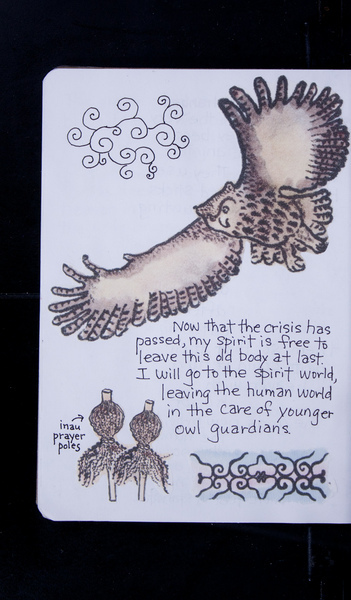 Now that the crisis has
passed, my spirit is free to
leave this old body at last.
I will go to the spirit world,
leaving the human world
in the care of younger
owl guardians.
inau
prayer
poles